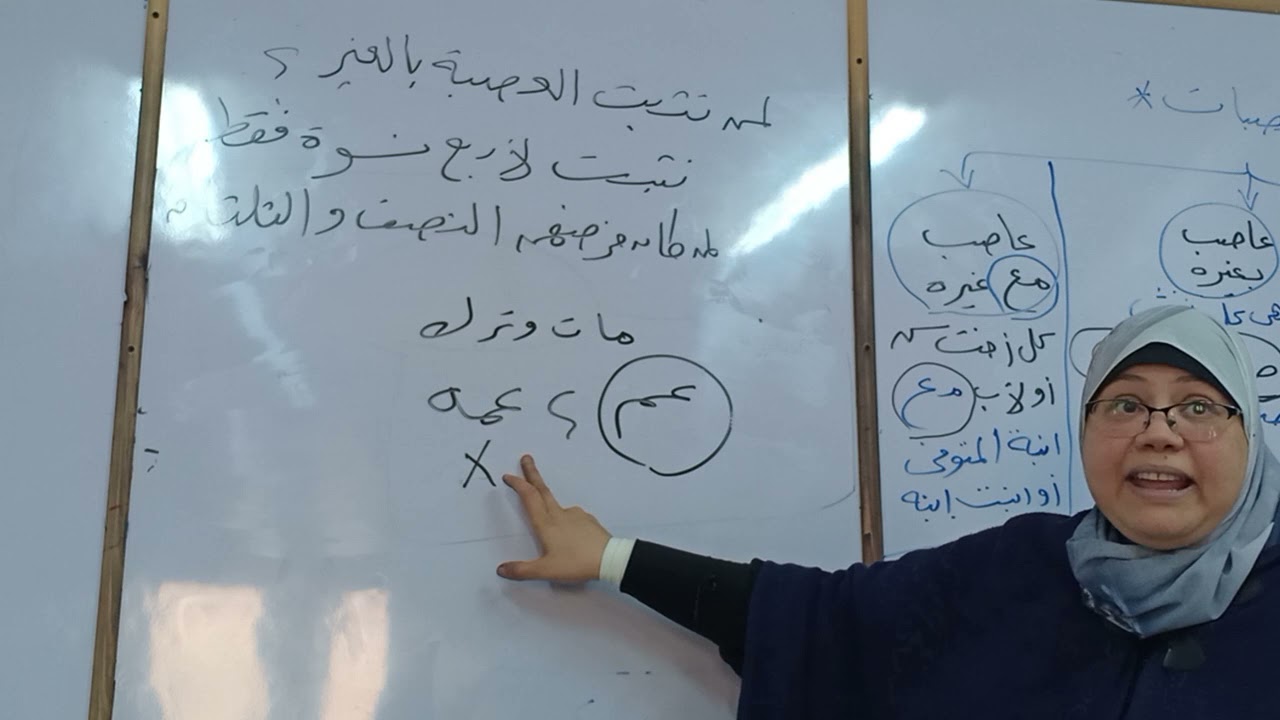 لمن تثبت العصبة بالغير ؟
تثبت لأربع نسوة فقط
لمن كان فرضهن النصف والثلث
مات وترك
عم ؟ عمه
X
صبات *
عاصب
بغيره
عاصب
مع غيره
كل أخت
أو لأب مع
ابنة المتوفى
أو ابنت ابنه